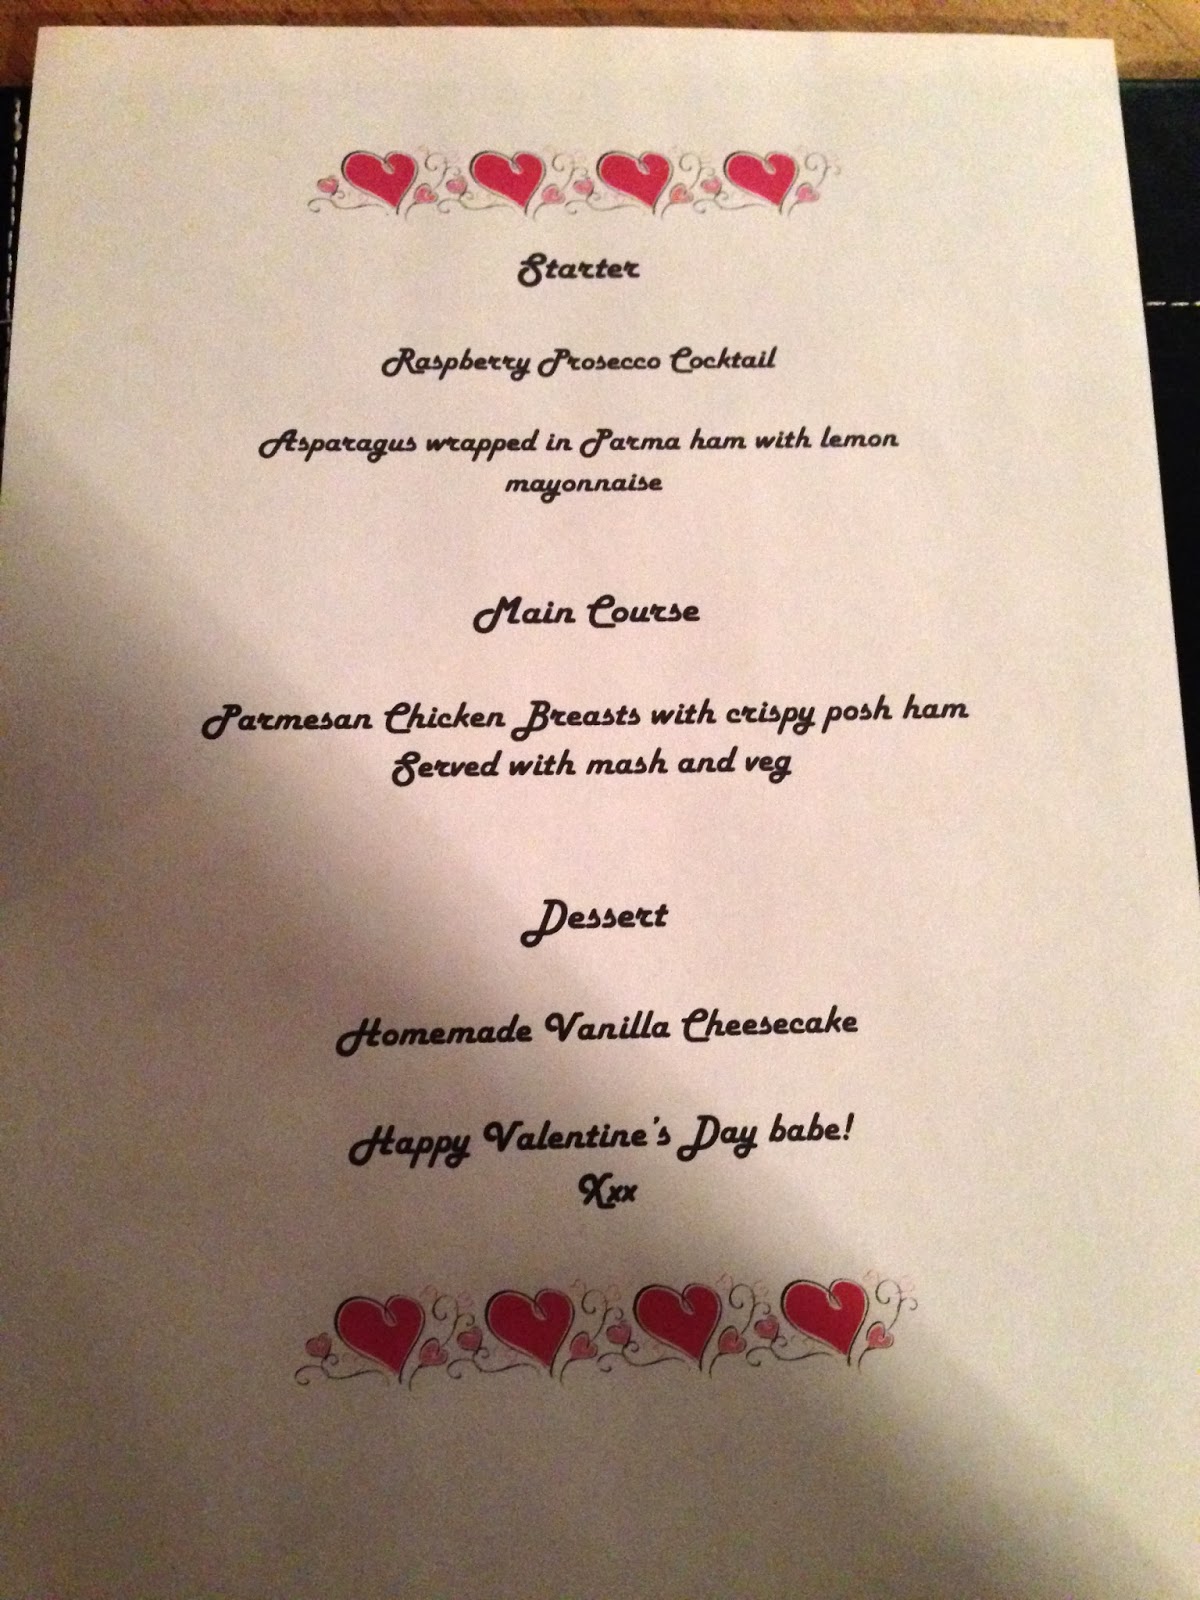 Starter
Raspberry Prosecco Cocktail
Asparagus wrapped in Parma ham with lemon
mayonnaise
Main Course
Parmesan Chicken Breasts with crispy posh ham
Served with mash and veg
Dessert
Homemade Vanilla Cheesecake
Happy Valentine's Day babe!
Xxx